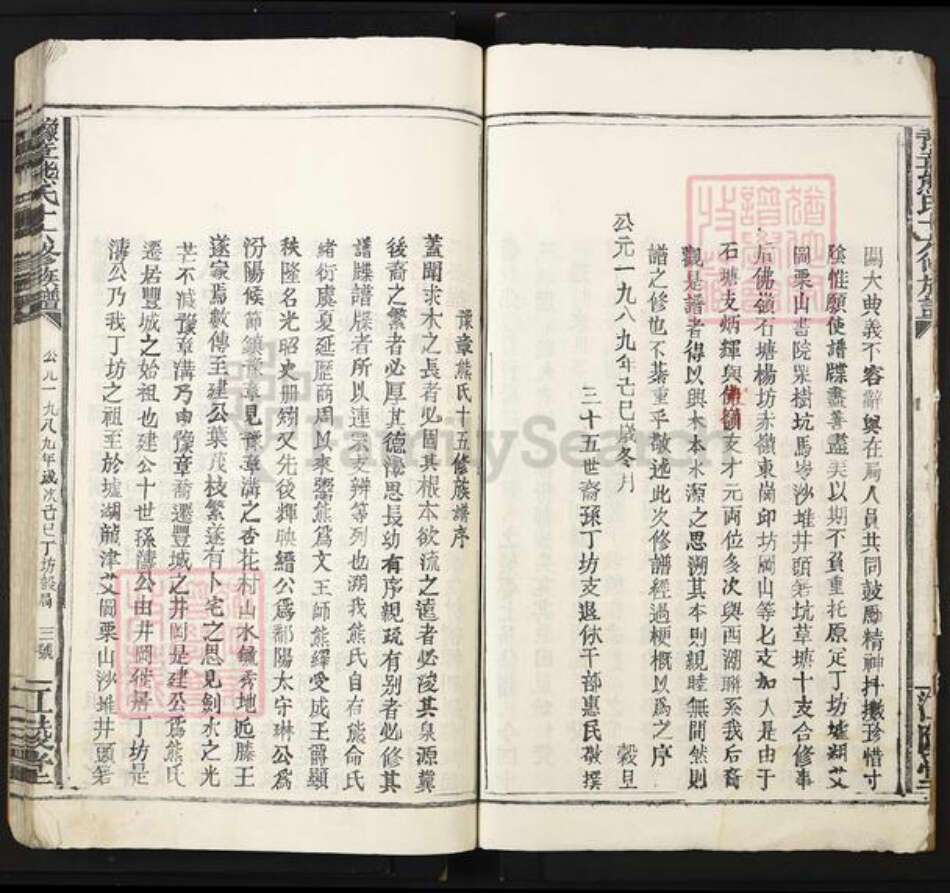 關大典義不容辭與在局人員共同鼓勵精神抖擻珍惜寸
陰惟願使譜牒盡善盡美以期不負重托原定丁坊墟湖艾
岡栗山書院梁樹坑馬岑沙堆井頭箬坑草塘十支合修事
后佛嶺石塘楊坊赤嶺東崗印坊岡山等七支加入是由于
石塘支炳輝與佛嶺支才元兩位多次與西湖聯系我后裔
觀是譜者得以興木本水源之思溯其本則親睦無間然則
譜之修也不綦重乎敬述此次修譜經過梗概以為之序
公元一九八九年己巳歲冬月 穀旦
三十五世裔孫丁坊支退休干部惠民敬撰
豫章熊氏十五修族譜序
蓋聞求木之長者必固其根本欲流之遠者必浚其泉源冀
後裔之繁者必厚其德澤思長幼有序親疏有别者必修其
譜牒譜牒者所以連宗支辨等列也溯我熊氏自有熊命氏
緒衍虞夏延歷商周以來鬻熊為文王師熊繹受成王爵顯
秩隆名光昭史册矧又先後輝映縉公為鄱陽太守琳公為
汾陽候節鎮豫章見豫章溝之杏花村山水鍾秀地近滕王
遂家焉數傳至建公葉茂枝繁遂有卜宅之思見劍水之光
芒不減豫章溝乃由豫章喬遷豐城之井岡是建公為熊氏
遷居豐城之始祖也建公十世孫濤公由井岡徙居丁坊是
濤公乃我丁坊之祖至於墟湖龍津艾岡栗山沙堆井頭箬
豫章熊氏十六修族譜
公元一九八九年歲次己巳丁坊設局
三號
江陵堂
FamilySearch